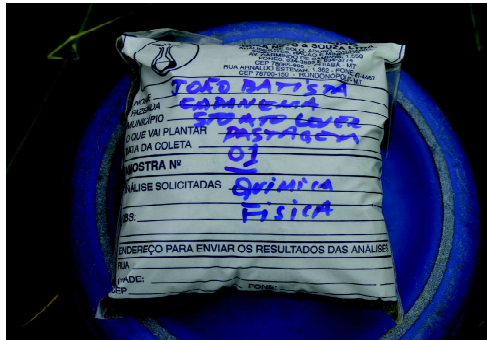 & SOUZA LTDA.
RUA ARNALDO ESTEVAN, 1.362 - FONE
CEP 78700-150 - RONDONOPOLIS-MT
NOME JOÃO BATISTA
FAZENDA CAPANEMA
MUNICÍPIO STO ATO LEVER
O QUE VAI PLANTAR PASTAGEM
DATA DA COLETA
AMOSTRA Nº 01
ANÁLISE SOLICITADAS QUIMICA
FISICA
OBS:
ENDEREÇO PARA ENVIAR OS RESULTADOS DAS ANÁLISES
RUA
CIDADE:
CEP FONE: